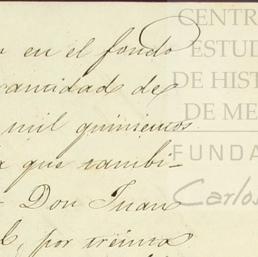 en el fondo
cantidad de
mil quinientos
que cambi-
Don Juan
por treinta
CENTR
ESTUD
DE HIST
DE ME
FUNDA
Carlos